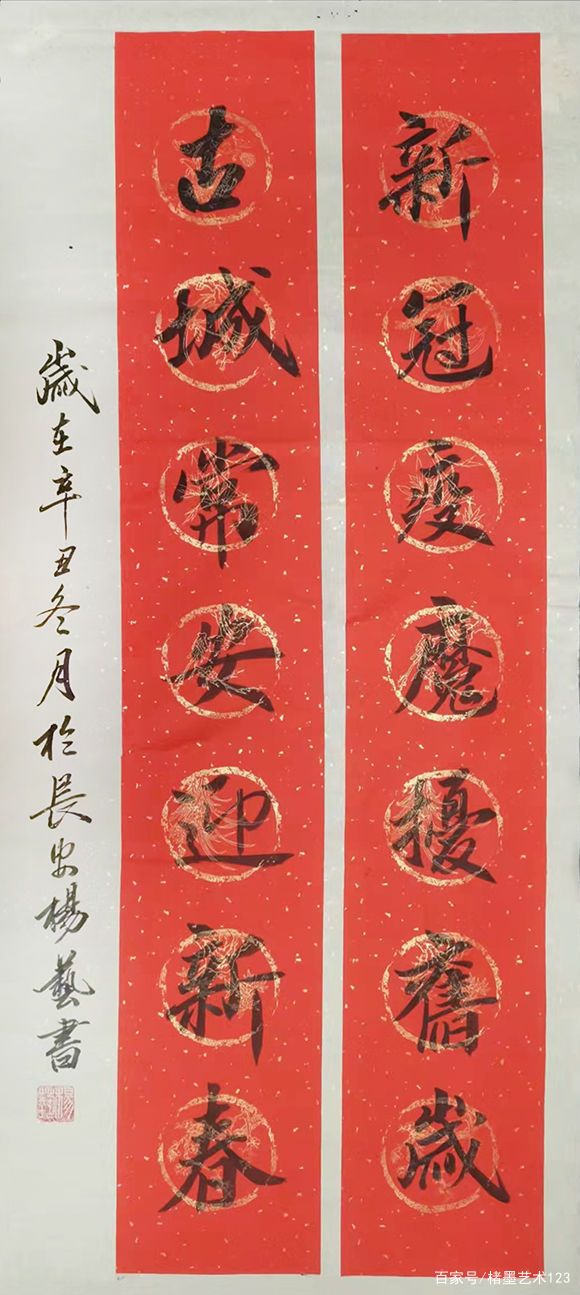 新冠疫魔擾舊歲
古城常安迎新春
歲在辛丑冬月於長安楊藝書
百家号/楮墨艺术123